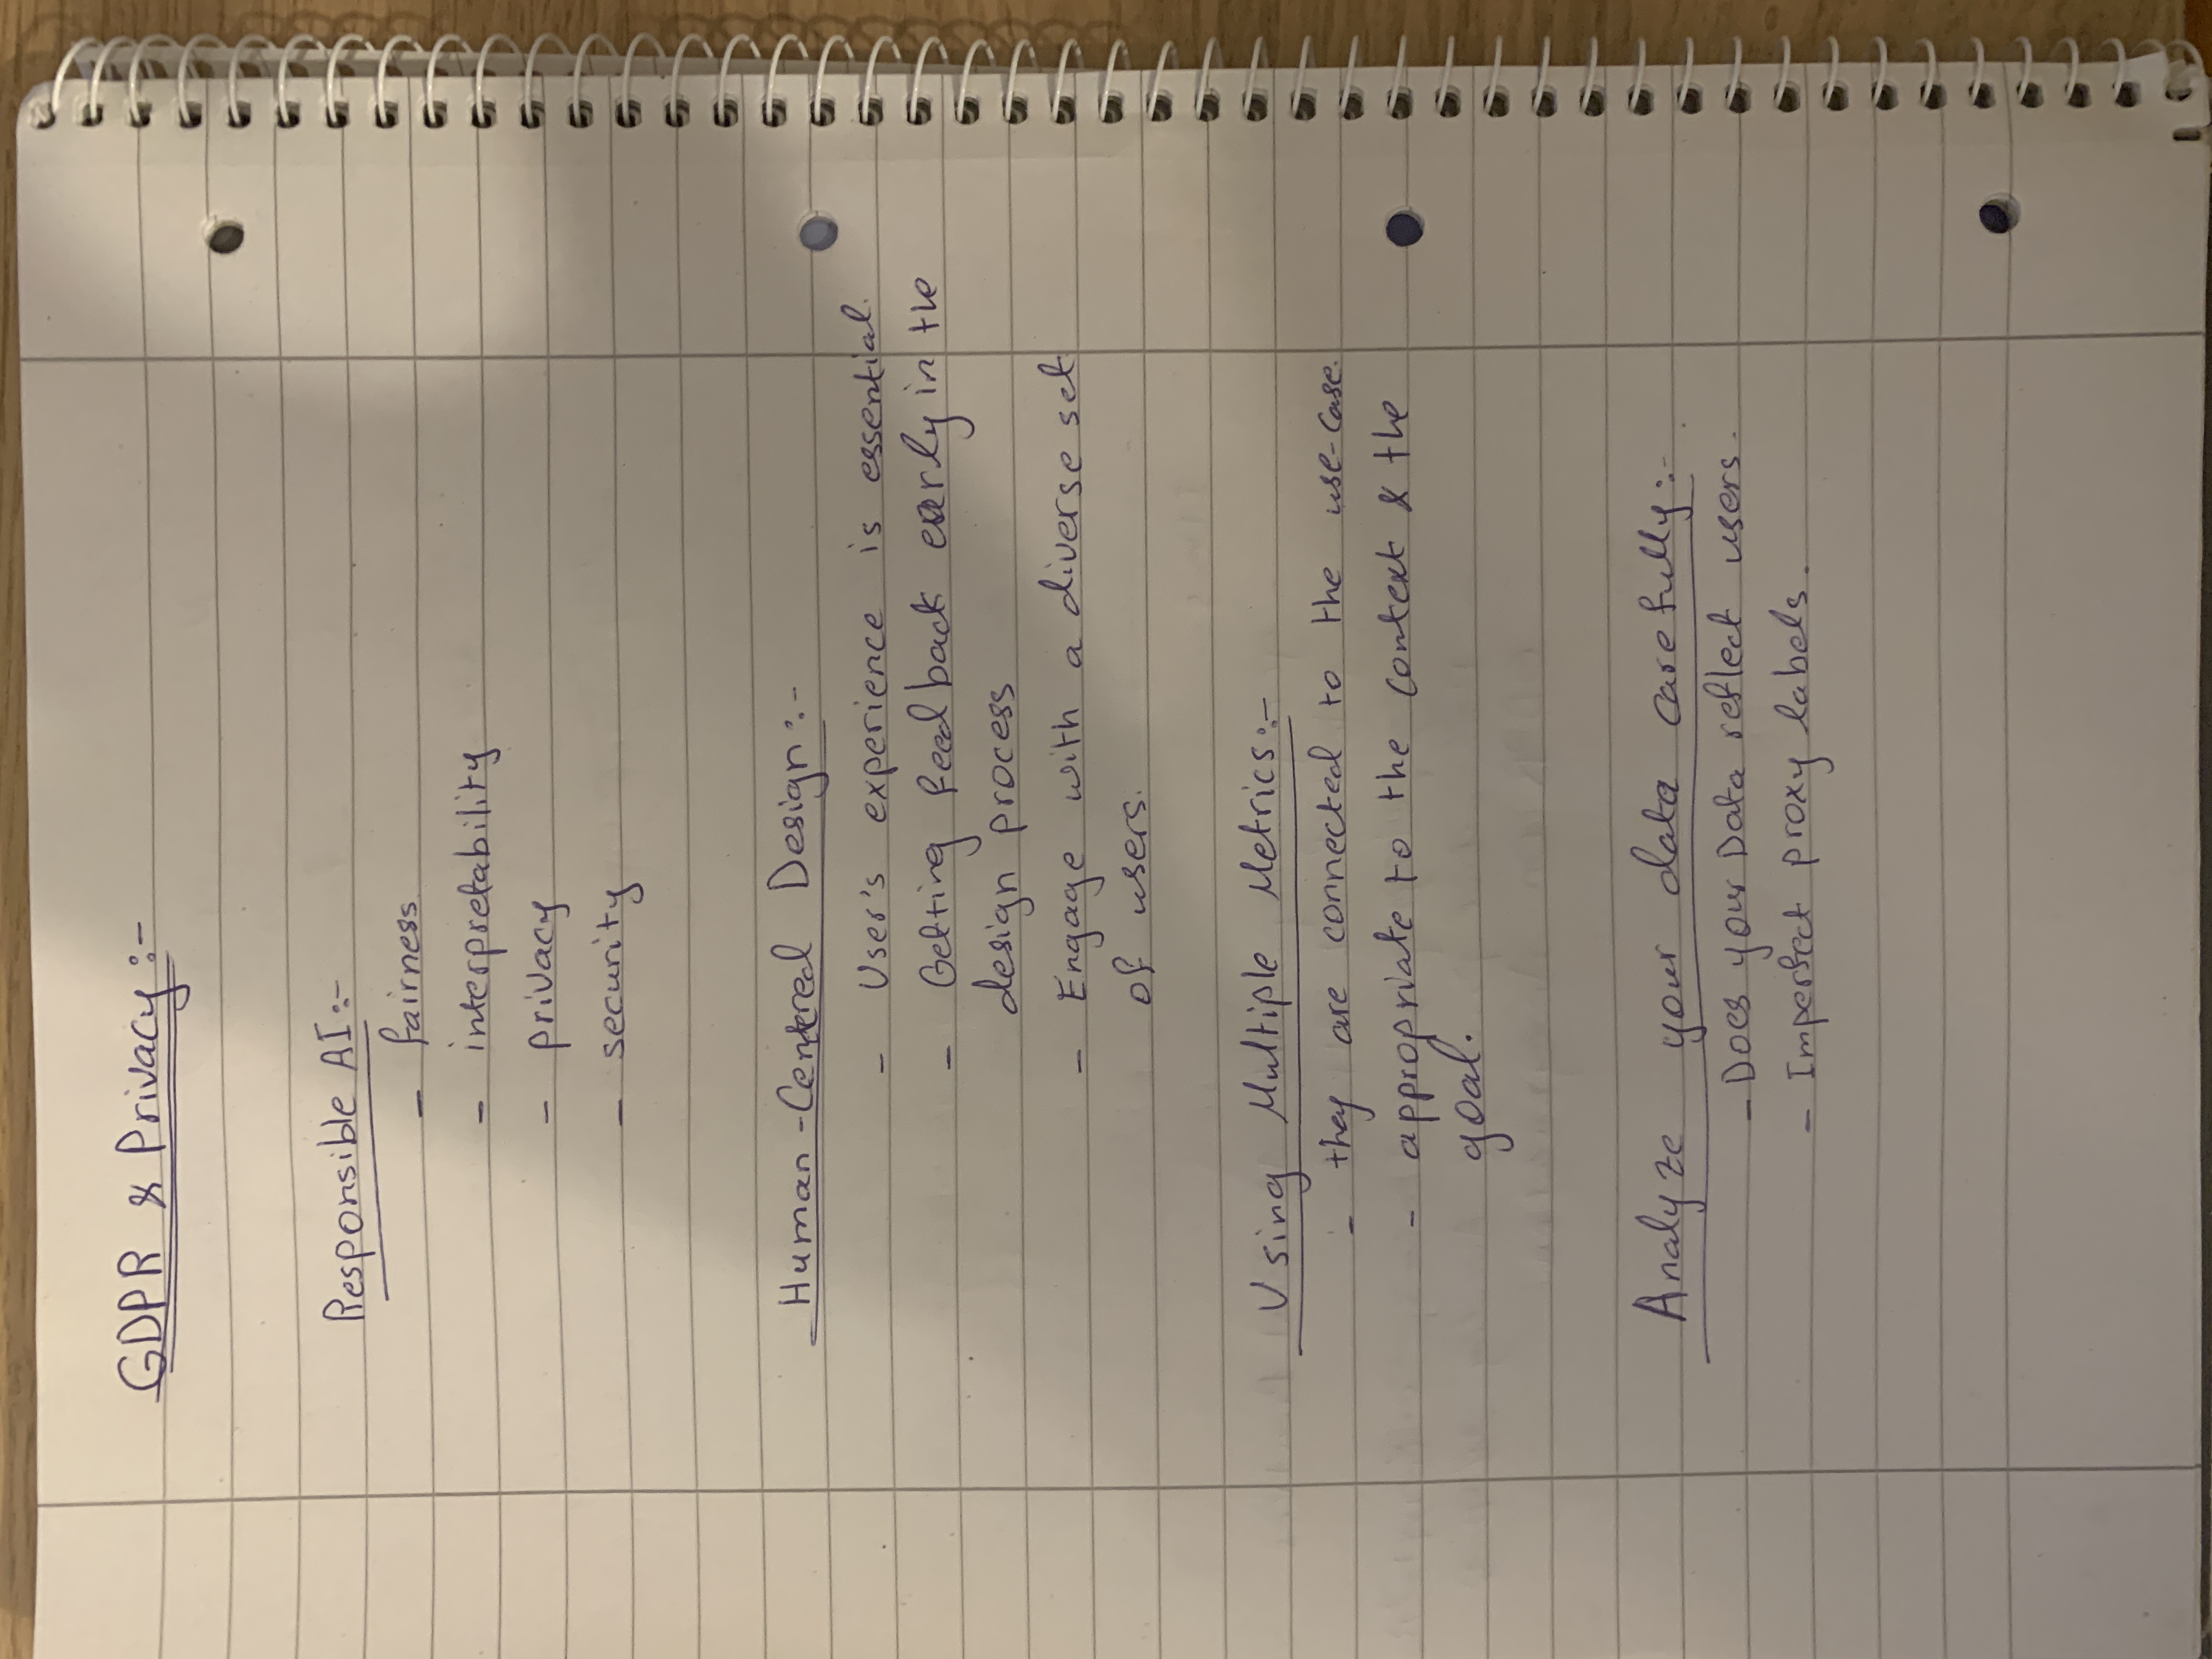 GDPR & Privacy:-
Responsible AI:-
- fairness
- interpretability
- privacy
- security
Human-Centered Design:-
- User's experience is essential.
- Getting feedback early in the
design process
- Engage with a diverse set
of users.
Using Multiple Metrics:-
- they are connected to the use-case.
- appropriate to the context & the
goal.
Analyze your data carefully:-
- Does your Data reflect users.
- Imperfect proxy labels.